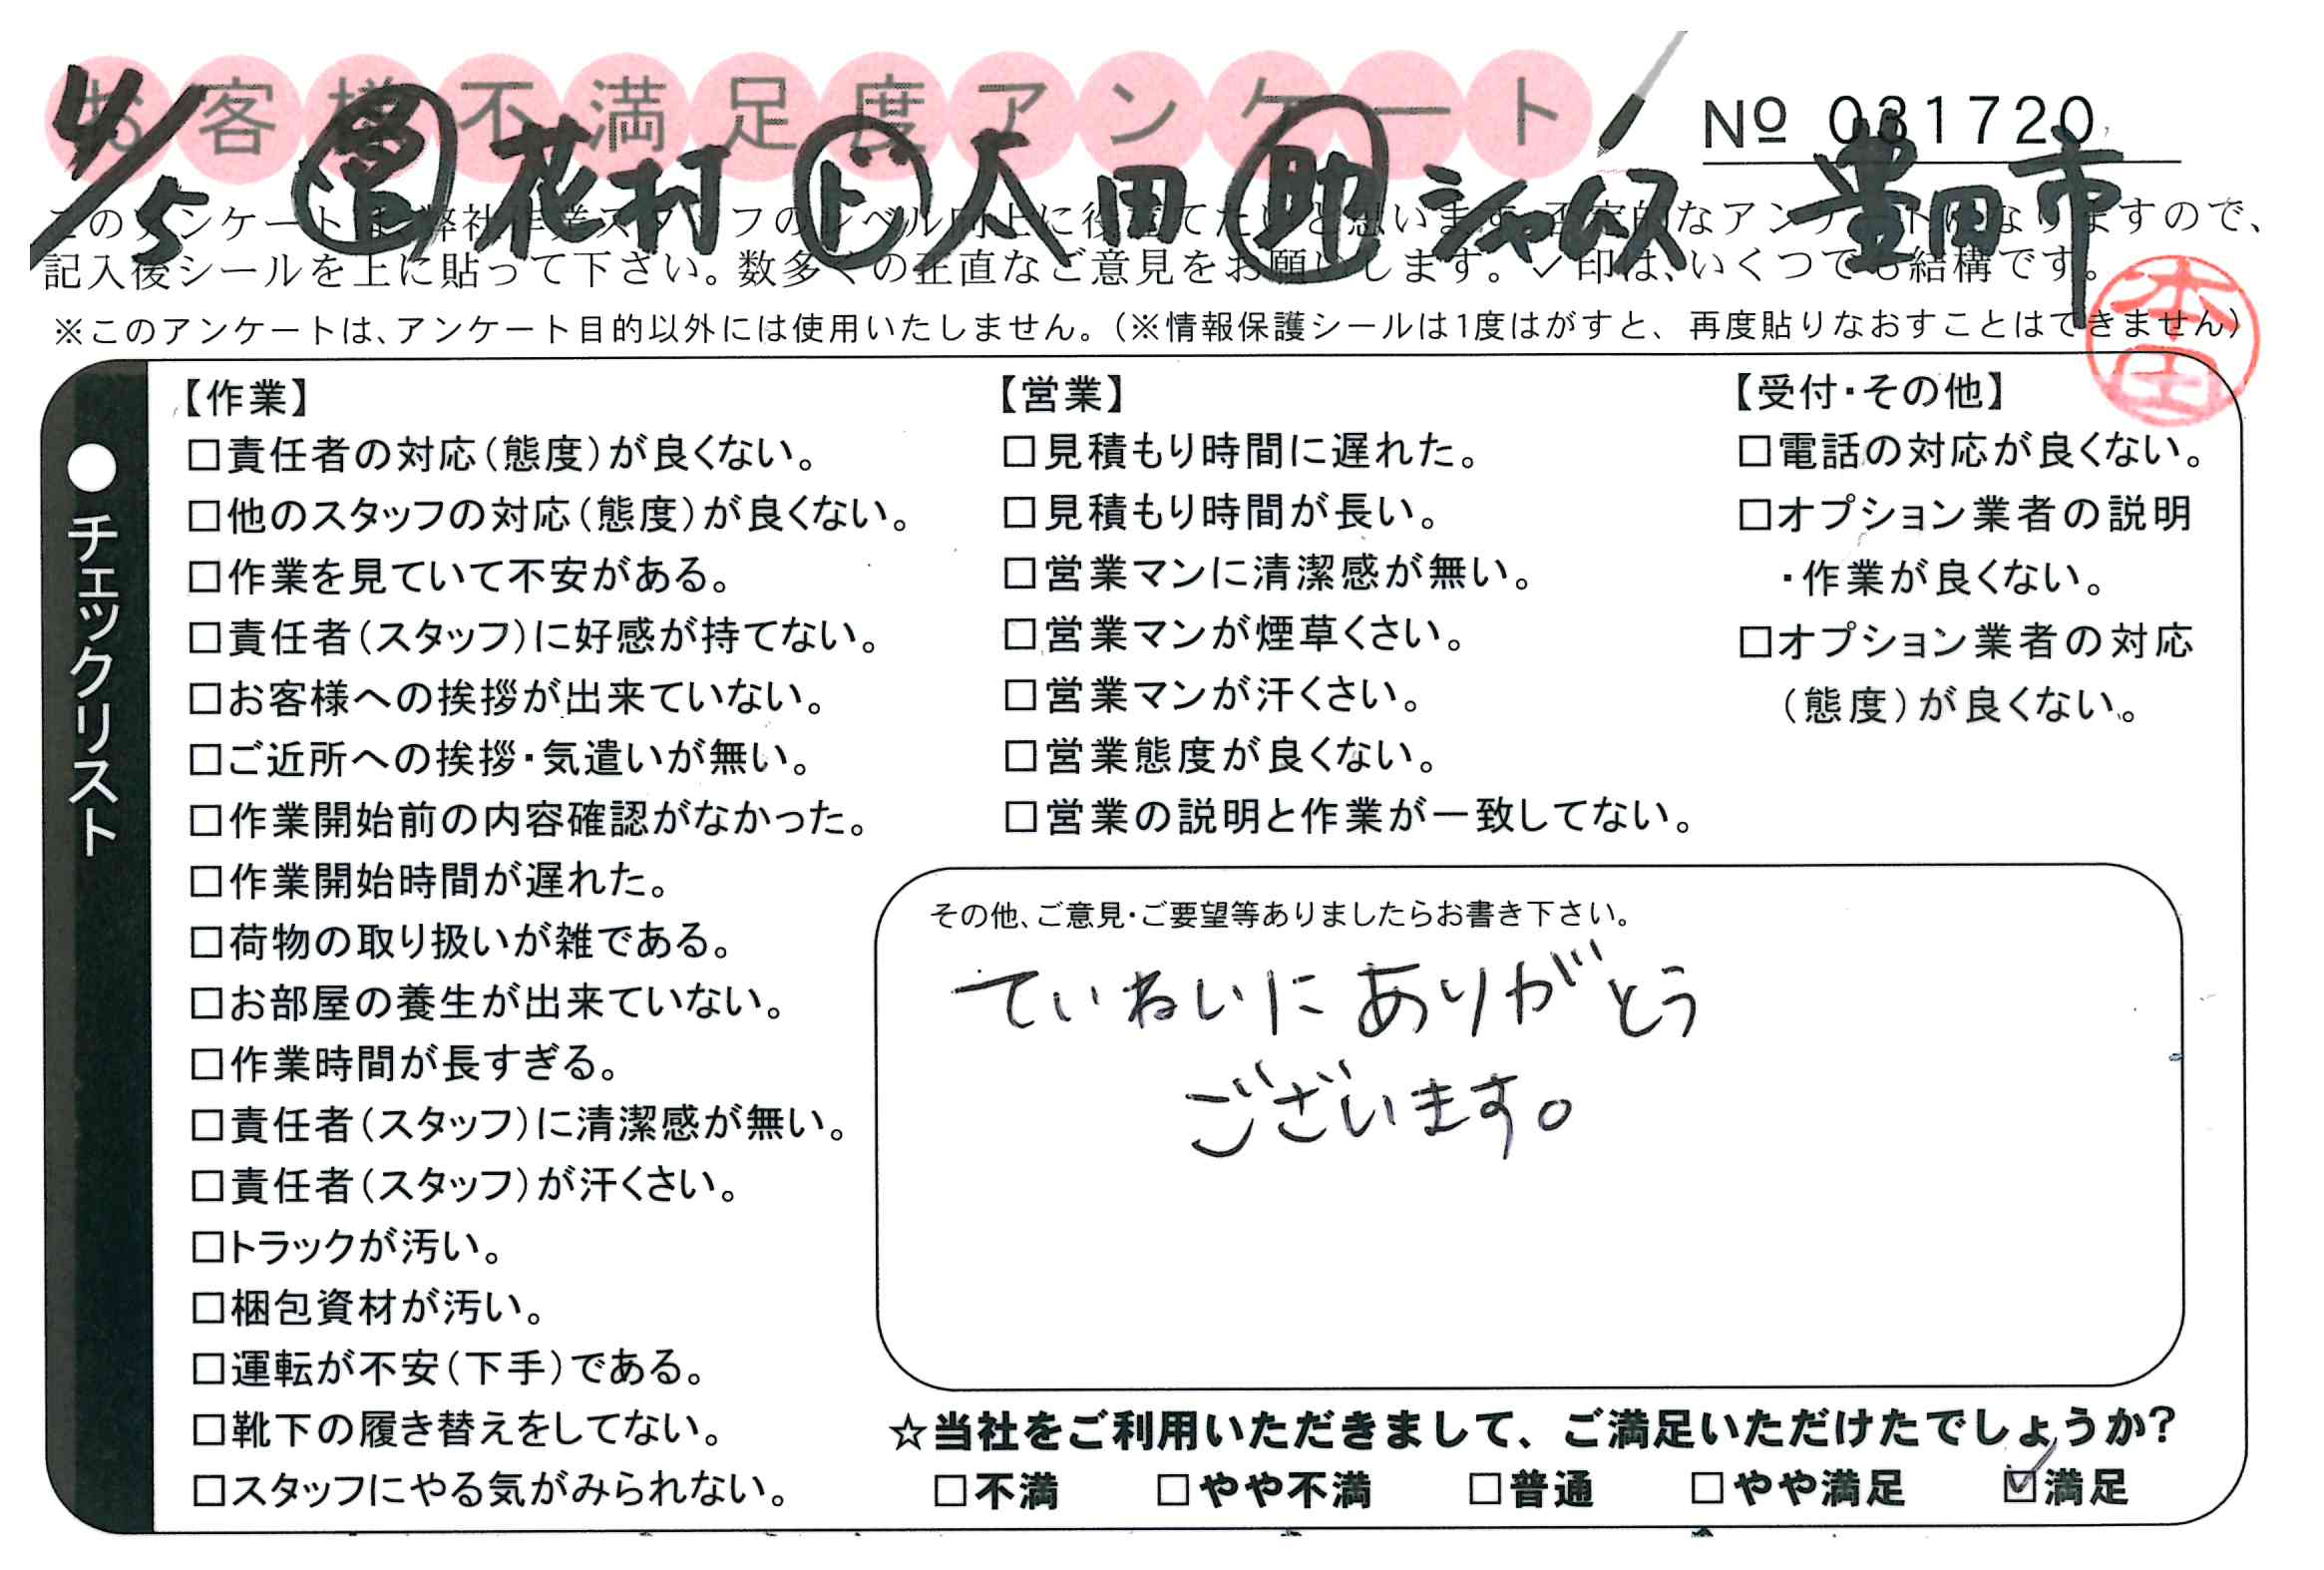 お客様不満足度アンケート
№ 031720
4/5 営 花村 ド 人田 助 シャムス 豊田市
このアンケートは、弊社作業スタッフのレベル向上に役立てたいと思います。否定的なアンケートになりますので、
記入後シールを上に貼って下さい。数多くの正直なご意見をお願いします。✓印は、いくつでも結構です。
※このアンケートは、アンケート目的以外には使用いたしません。（※情報保護シールは1度はがすと、再度貼りなおすことはできません）
●チェックリスト
【作業】
□責任者の対応（態度）が良くない。
□他のスタッフの対応（態度）が良くない。
□作業を見ていて不安がある。
□責任者（スタッフ）に好感が持てない。
□お客様への挨拶が出来ていない。
□ご近所への挨拶・気遣いが無い。
□作業開始前の内容確認がなかった。
□作業開始時間が遅れた。
□荷物の取り扱いが雑である。
□お部屋の養生が出来ていない。
□作業時間が長すぎる。
□責任者（スタッフ）に清潔感が無い。
□責任者（スタッフ）が汗くさい。
□トラックが汚い。
□梱包資材が汚い。
□運転が不安（下手）である。
□靴下の履き替えをしてない。
□スタッフにやる気がみられない。
【営業】
□見積もり時間に遅れた。
□見積もり時間が長い。
□営業マンに清潔感が無い。
□営業マンが煙草くさい。
□営業マンが汗くさい。
□営業態度が良くない。
□営業の説明と作業が一致してない。
【受付・その他】
□電話の対応が良くない。
□オプション業者の説明
・作業が良くない。
□オプション業者の対応
（態度）が良くない。
その他、ご意見・ご要望等ありましたらお書き下さい。
ていねいにありがとう
ございます。
☆当社をご利用いただきまして、ご満足いただけたでしょうか？
□不満 □やや不満 □普通 □やや満足 ☑満足